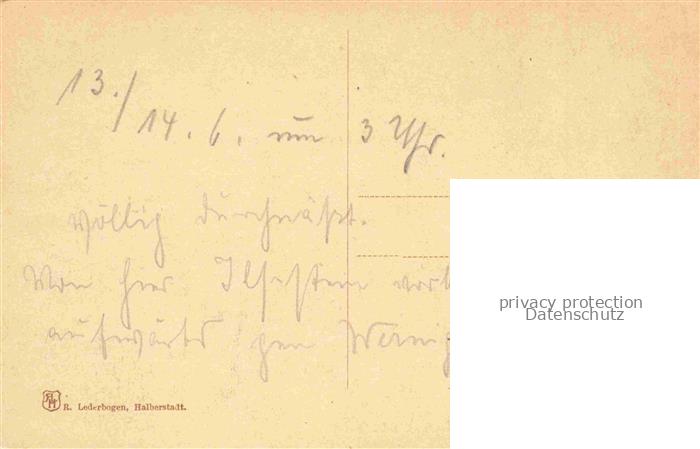 13./
14. 6. um 3 Uhr.
völlig durchnäßt.
Von hier Ilsestein
aufwärts gen Wernig
R. Lederbogen, Halberstadt.
privacy protection
Datenschutz